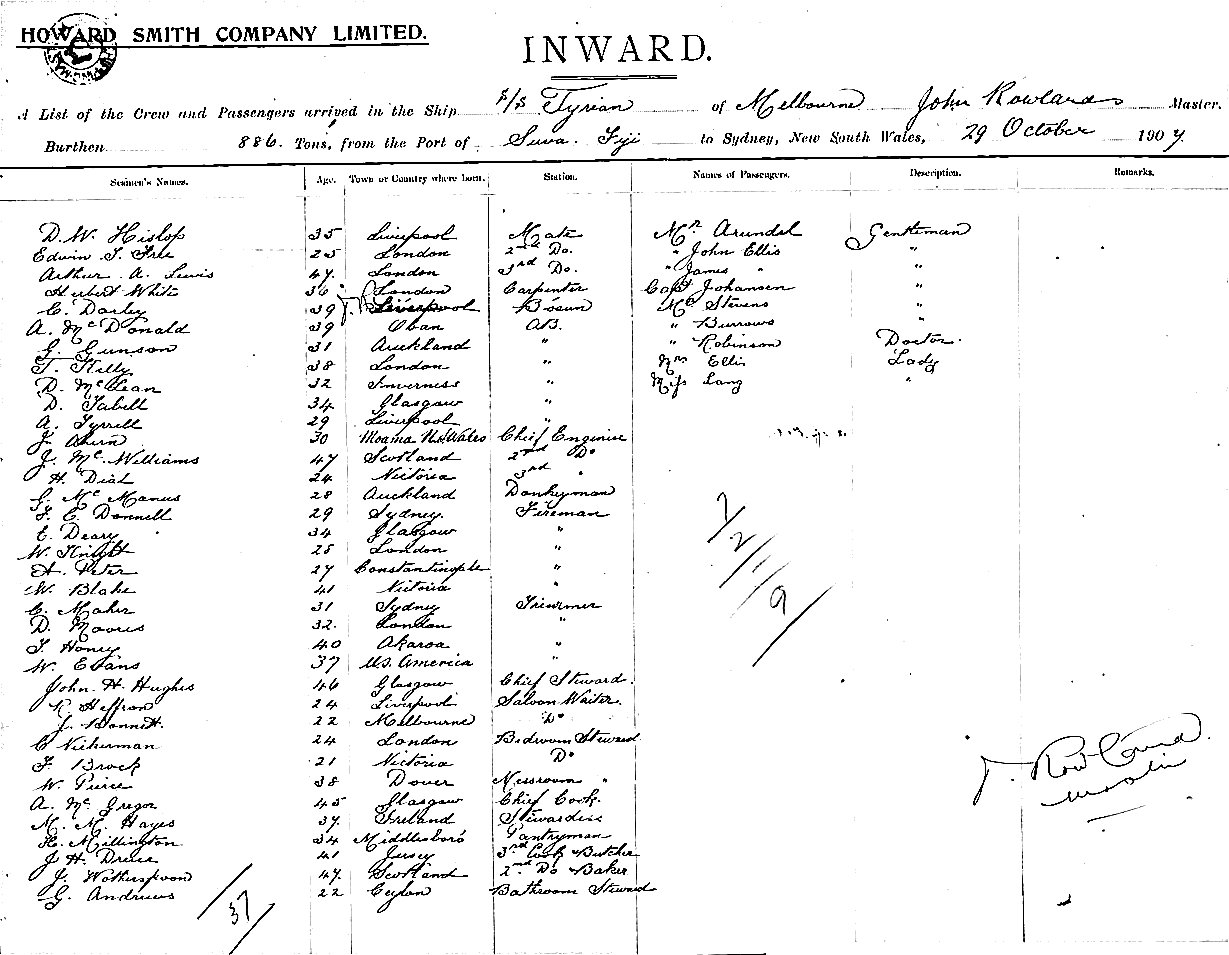 HOWARD SMITH COMPANY LIMITED.
INWARD.
A List of the Crew and Passengers arrived in the Ship S/S Tyrian of Melbourne John Rowlands Master.
Burthen 886. Tons, from the Port of Suva Fiji to Sydney, New South Wales, 29 October 1907
Seamen's Names. Age. Town or Country where born. Station. Names of Passengers. Description. Remarks.
D. W. Hislop 35 Liverpool Mate Mr. Arundel Gentleman
Edwin T. Free 25 London 2nd Do. " John Ellis "
Arthur A. Lewis 47 London 3rd Do. " James " "
Herbert White 36 London Carpenter Capt Johansen "
C. Darley 39 Liverpool Bosun Mr Stevens "
A. McDonald 39 Oban A.B. " Burrows "
G. Gunson 31 Auckland " " Robinson Doctor.
T. Kelly 38 London " Mrs Ellis Lady
D. McLean 32 Inverness " Miss Lang "
D. Tabell 34 Glasgow "
A. Tyrrell 29 Liverpool "
J. Ahern 30 Moama N.S.Wales Chief Engineer
J. Mc Williams 47 Scotland 2nd Do
H. Dial 24 Victoria 3rd "
G. Mc Manus 28 Auckland Donkeyman
F. C. Donnell 29 Sydney. Fireman
E. Deary 34 Glasgow "
W. Knight 25 London "
H. Peter 27 Constantinople "
W. Blake 41 Victoria "
C. Maher 31 Sydney Trimmer
D. Moores 32. London "
T. Honey 40 Akaroa "
W. Evans 37 U.S. America "
John. H. Hughes 46 Glasgow Chief Steward.
R. Heffron 24 Liverpool Saloon Waiter.
J. Bennett. 22 Melbourne Do
C Nickerman 24 London Bedroom Steward
F. Brock 21 Victoria Do
W. Pierce 38 Dover Messroom "
A. Mc Gregor 45 Glasgow Chief Cook.
M. M. Hayes 37 Ireland Stewardess
H. Millington 34 Middlesboro Pantryman
J. H. Druce 41 Jersey 3rd Cook & Butcher
J. Wotherspoon 47. Scotland 2nd Do & Baker
G. Andrews 22 Ceylon Bathroom Steward
37
7/2/11/9
J. Rowlands.
Master